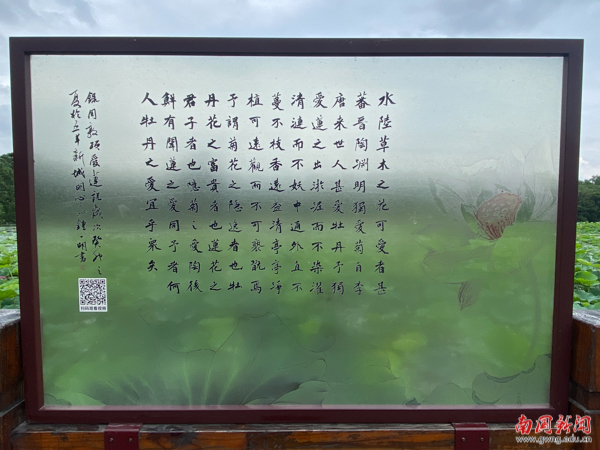 水陸草木之花可愛者甚
蕃晋陶渊明獨愛菊自李
唐来世人甚愛牡丹予獨
愛蓮之出淤泥而不染濯
清漣而不妖中通外直不
蔓不枝香遠益清亭亭淨
植可遠觀而不可褻翫焉
予謂菊花之隐逸者也牡
丹花之富貴者也蓮花之
君子者也噫菊之愛陶後
鮮有聞蓮之愛同予者何
人牡丹之愛宜乎衆矣
録周敦頤愛蓮説歲次癸卯之
夏於新城明心書
南国新闻
www.gwng.edu.cn